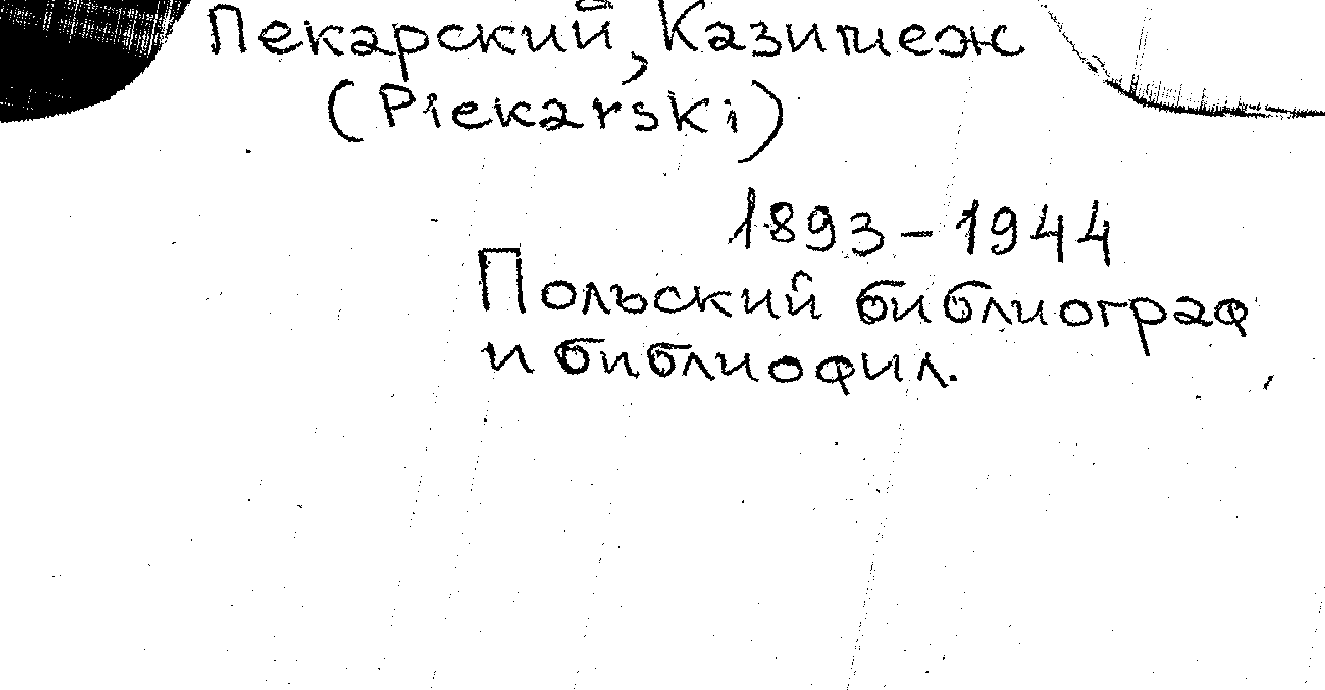 Пекарский, Казимеж
(Piekarski)
1893-1944
Польский библиограф
и библиофил.